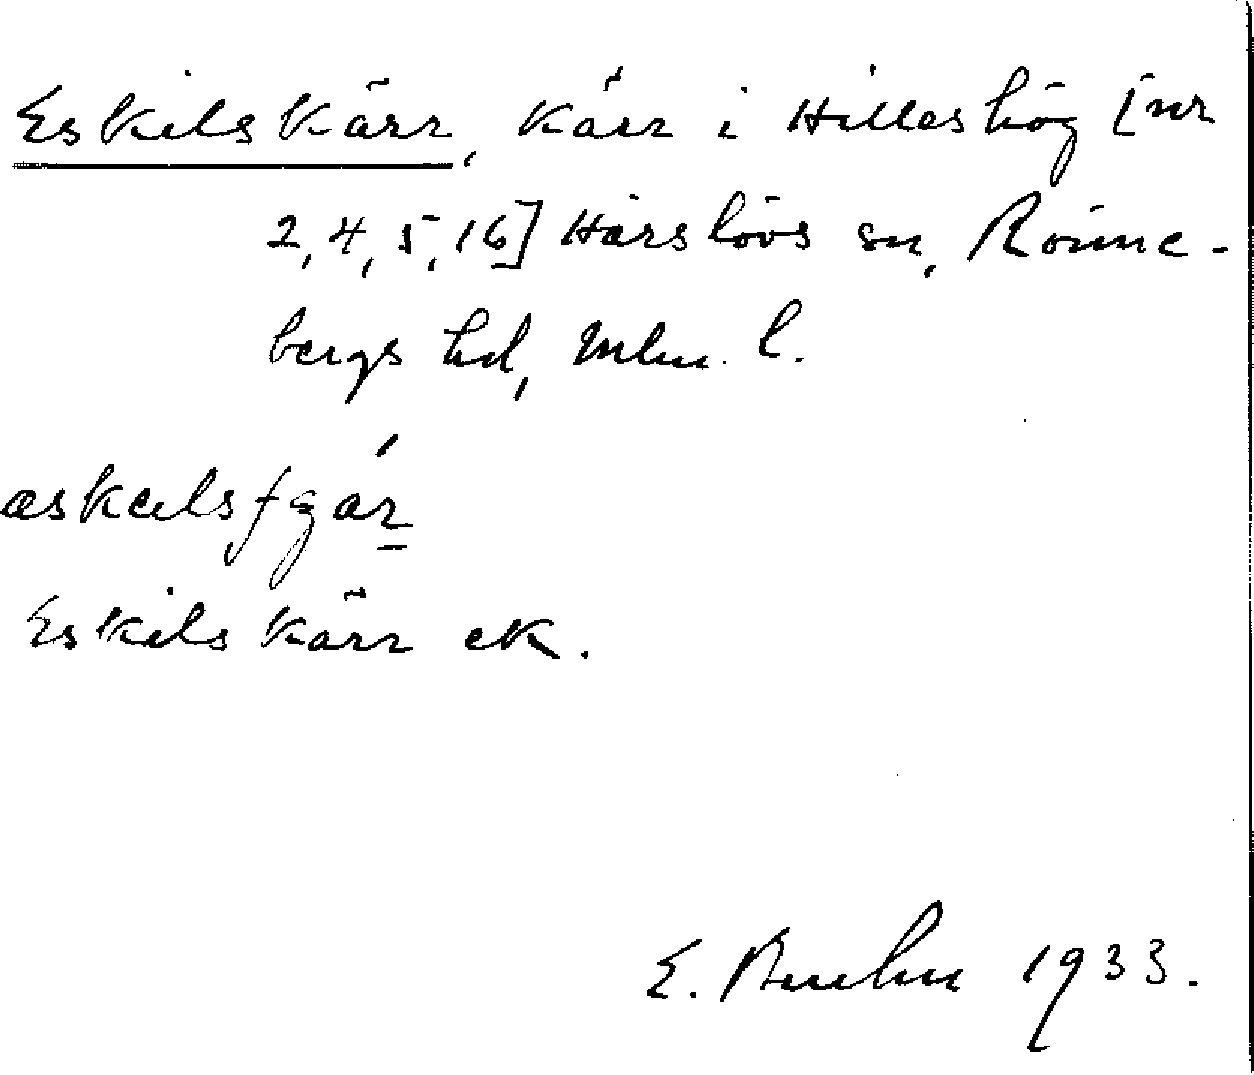 Eskilskärr, kärr i Hilleshög [nr
2, 4, 5, 16] Härslövs sn, Rönne-
bergs hd, Mlm. l.
æskælsʃgár
Eskilskärr ek.
E. Bruhn 1933.